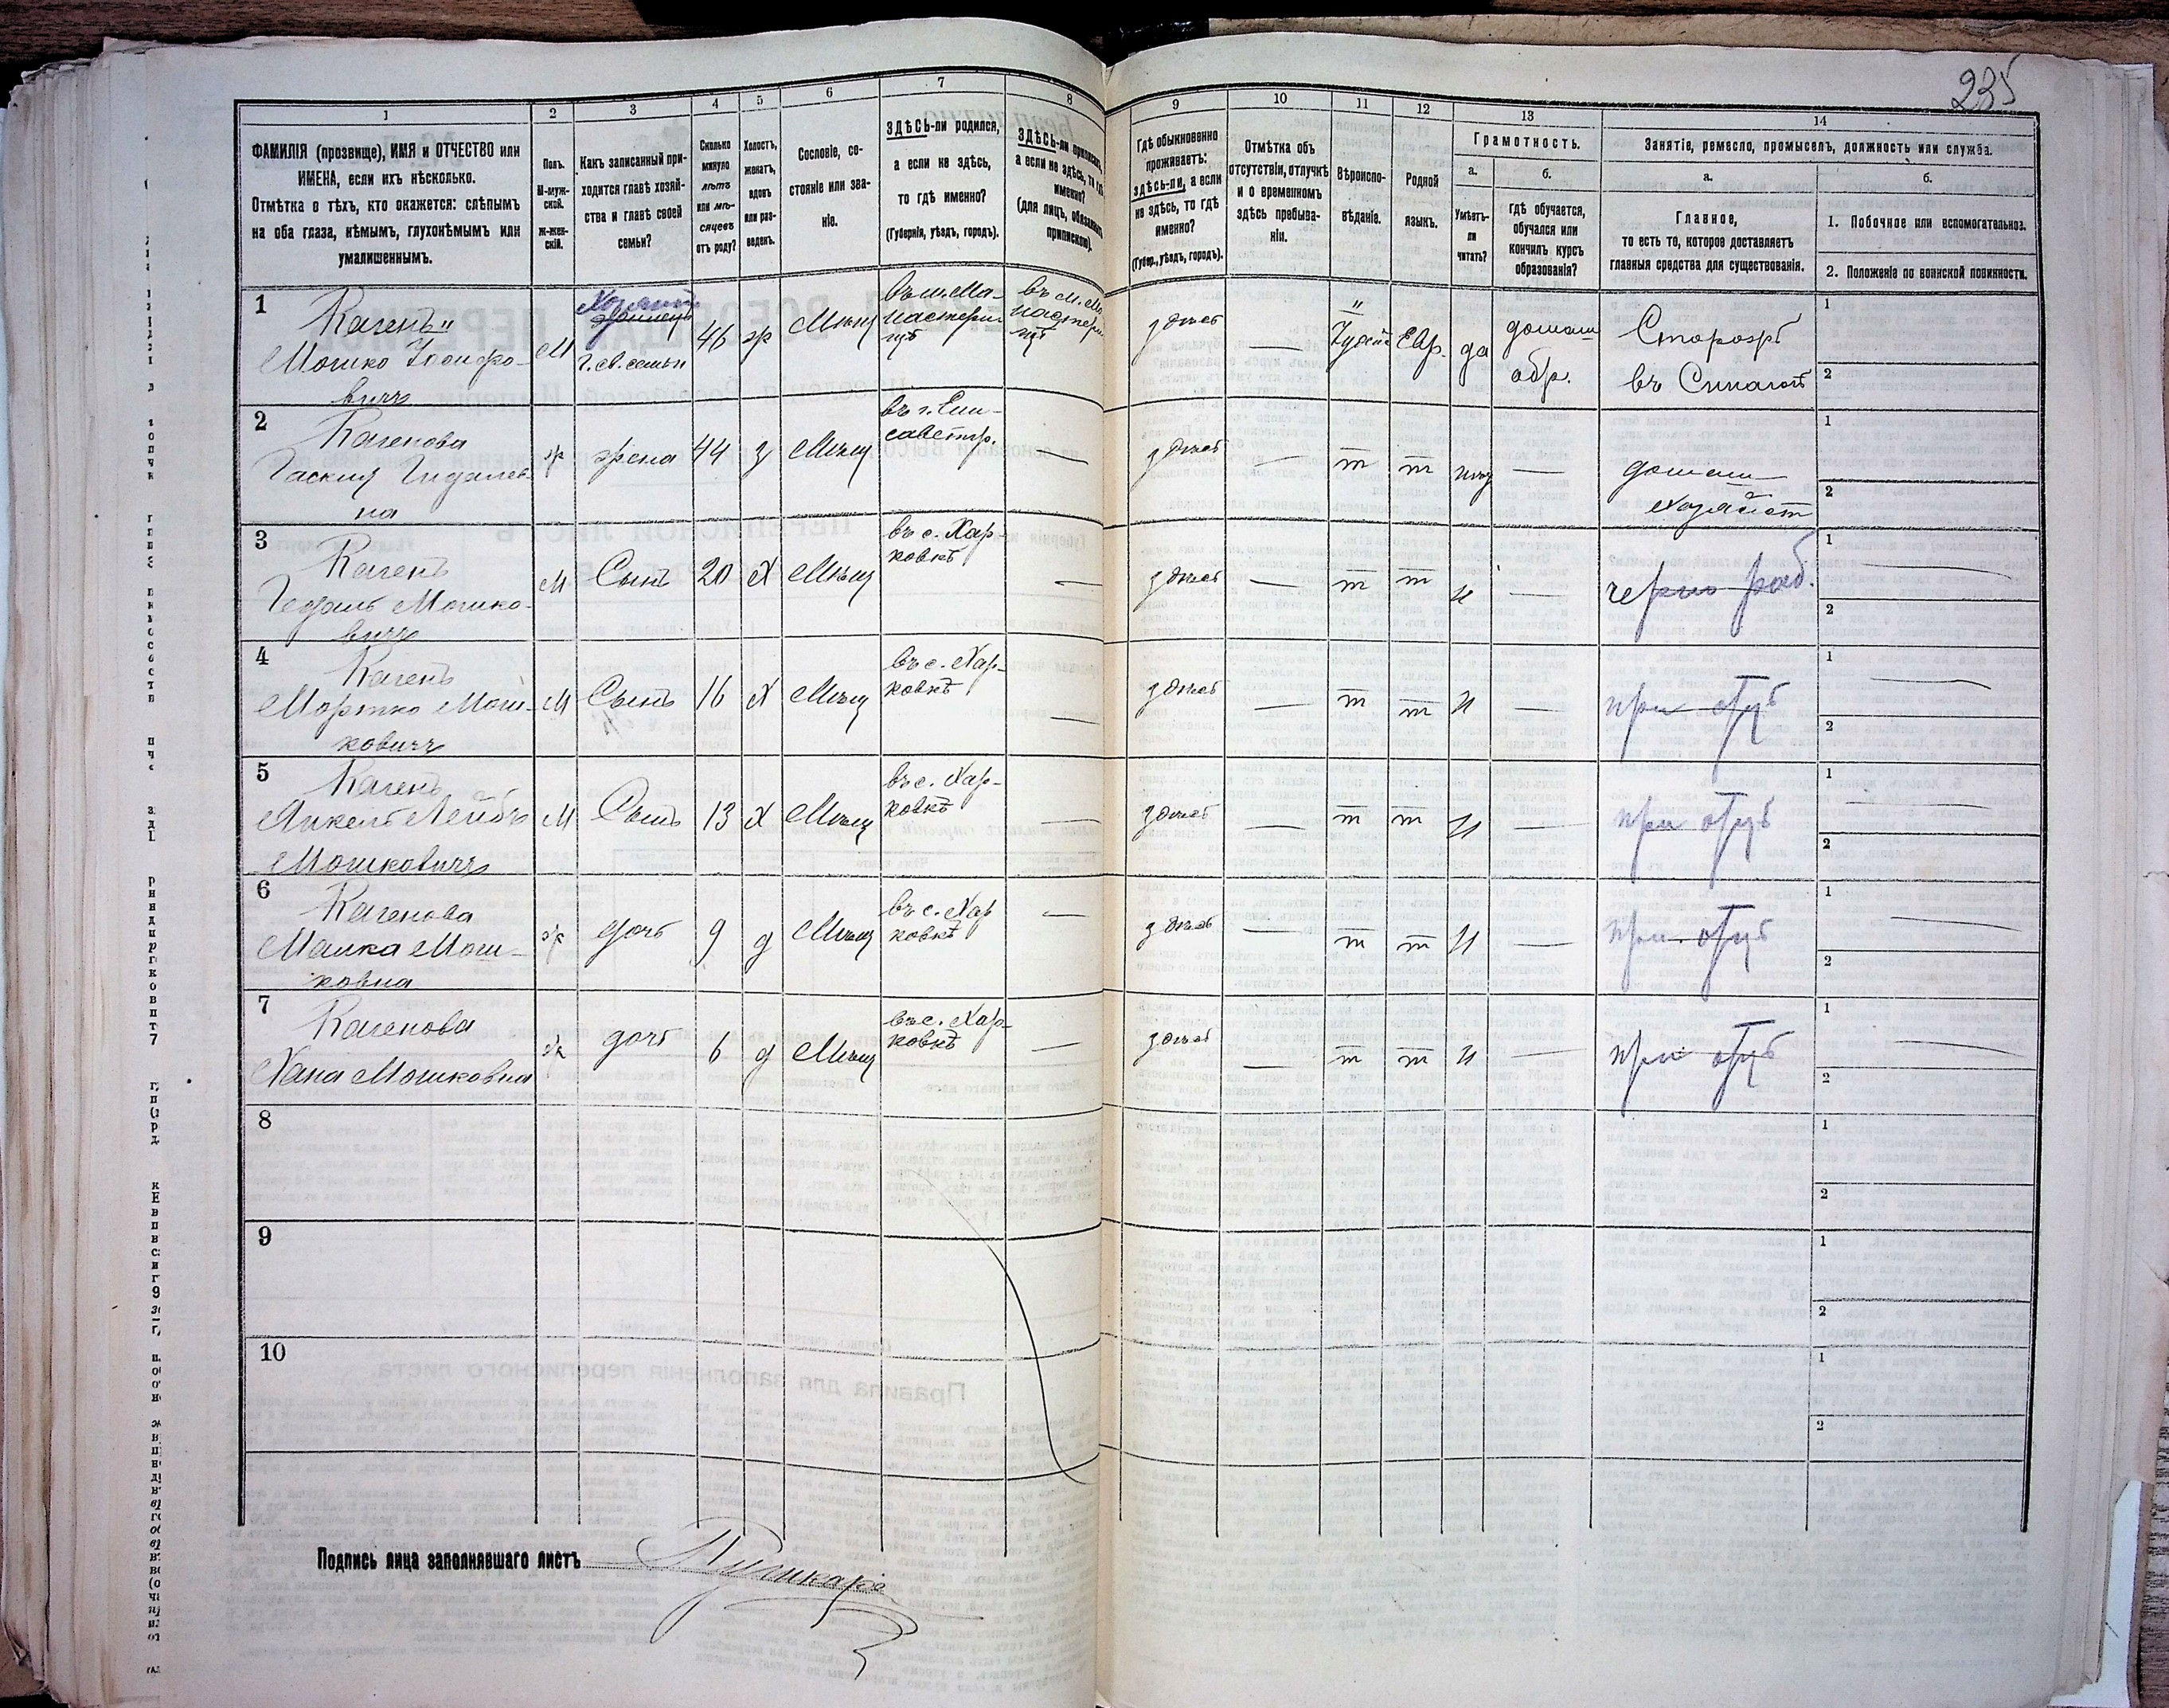 235
1
2
3
4
5
6
7
8
9
10
11
12
13
14
ФАМИЛІЯ (прозвище), ИМЯ и ОТЧЕСТВО или
ИМЕНА, если ихъ нѣсколько.
Отмѣтка о тѣхъ, кто окажется: слѣпымъ
на оба глаза, нѣмымъ, глухонѣмымъ или
умалишеннымъ.
Полъ.
М-муж-
ской.
ж-жен-
скій.
Какъ записанный при-
ходится главѣ хозяй-
ства и главѣ своей
семьи?
Сколько
минуло
лѣтъ
или мѣ-
сяцевъ
отъ роду?
Холостъ,
женатъ,
вдовъ
или раз-
веденъ.
Сословіе, со-
стояніе или зва-
ніе.
ЗДѢСЬ-ли родился,
а если не здѣсь,
то гдѣ именно?
(Губернія, уѣздъ, городъ).
ЗДѢСЬ-ли приписанъ,
а если не здѣсь, то гдѣ
именно?
(для лицъ, обязанныхъ
припискою).
Гдѣ обыкновенно
проживаетъ:
здѣсь-ли, а если
не здѣсь, то гдѣ
именно?
(Губер., уѣздъ, городъ).
Отмѣтка объ
отсутствіи, отлучкѣ
и о временномъ
здѣсь пребыва-
ніи.
Вѣроиспо-
вѣданіе.
Родной
языкъ.
Грамотность.
а.
б.
Умѣетъ-
ли
читать?
гдѣ обучается,
обучался или
кончилъ курсъ
образованія?
Занятіе, ремесло, промыселъ, должность или служба.
а.
б.
Главное,
то есть то, которое доставляетъ
главныя средства для существованія.
1. Побочное или вспомогательное.
2. Положеніе по воинской повинности.
1
Каганъ
Мошко
вичъ
М
Хозяинъ
г. св. семьи
46
ж
Мѣщ
въ м.
въ м.
здѣсь
—
Іудей
Евр.
да
домаш
обр.
Сторожъ
въ Синагогѣ
1
2
2
Каганова
на
ж
жена
44
з
Мѣщ
въ г. Ели-
саветгр.
—
здѣсь
—
т
т
—
домаш
хозяйст
1
2
3
Каганъ
Мошко-
вичъ
М
Сынъ
20
Х
Мѣщ
въ с. Хар-
ковкѣ
—
здѣсь
—
т
т
н
—
черно раб.
1
2
4
Каганъ
Мортко Мош-
ковичъ
М
Сынъ
16
Х
Мѣщ
въ с. Хар-
ковкѣ
—
здѣсь
—
т
т
н
—
при отцѣ
1
2
5
Каганъ
Янкель Лейбъ
Мошковичъ
М
Сынъ
13
Х
Мѣщ
въ с. Хар-
ковкѣ
—
здѣсь
—
т
т
н
—
при отцѣ
1
2
6
Каганова
Малка Мош-
ковна
ж
дочь
9
д
Мѣщ
въ с. Хар
ковкѣ
—
здѣсь
—
т
т
н
—
при отцѣ
1
2
7
Каганова
Хана Мошковна
ж
дочь
6
д
Мѣщ
въ с. Хар-
ковкѣ
—
здѣсь
—
т
т
н
—
при отцѣ
1
2
8
1
2
9
1
2
10
1
2
Подпись лица заполнявшаго листъ